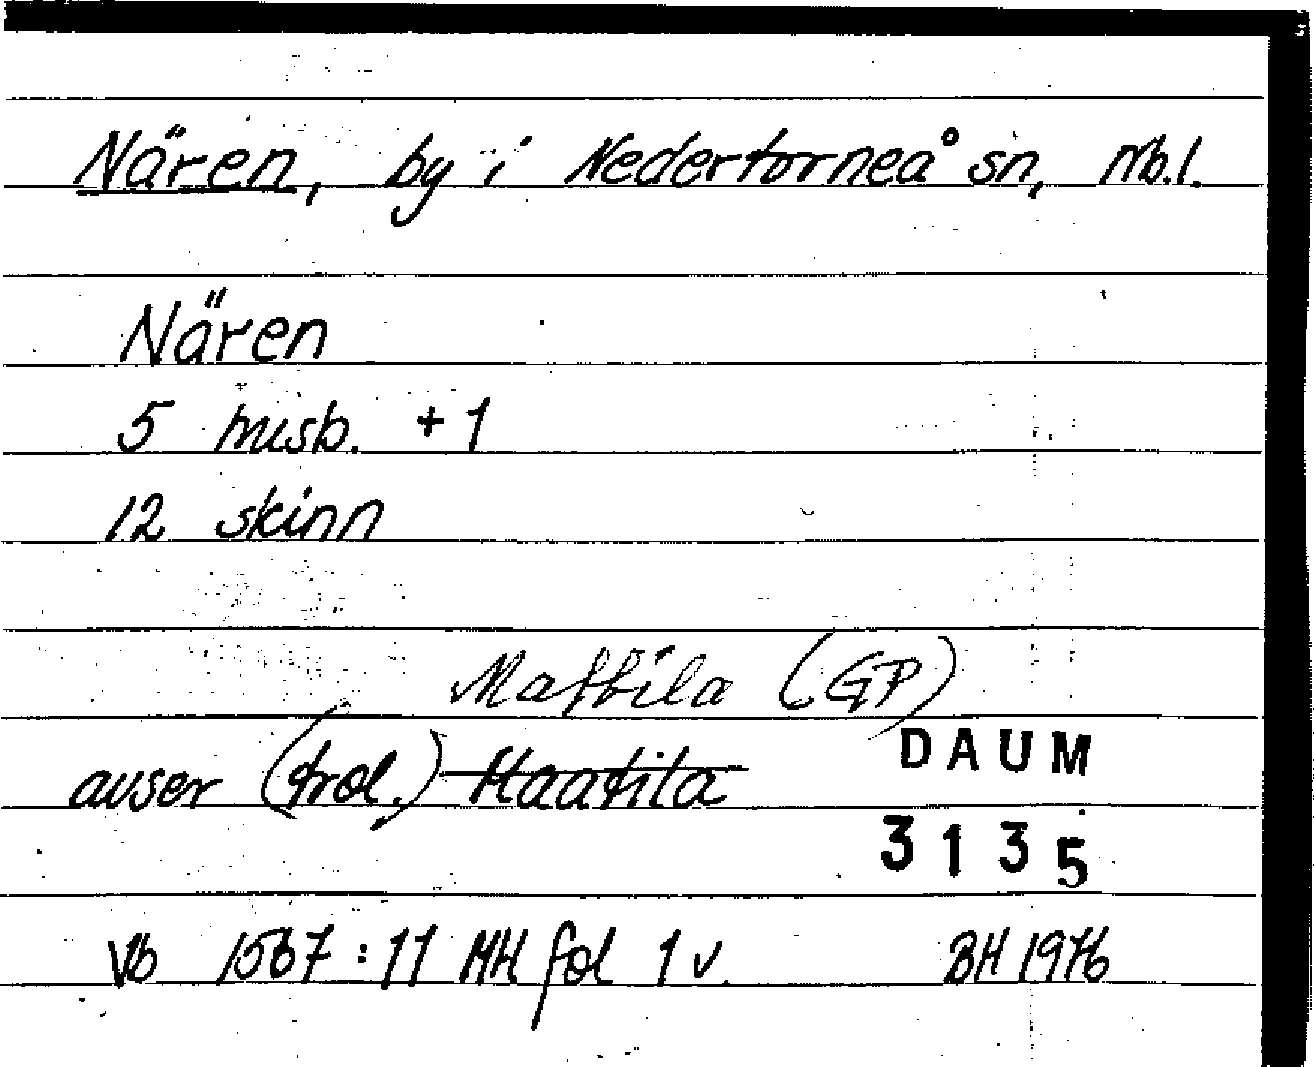 Nären, by i Nedertorneå sn, Nb.l.
Nären
5 husb. + 1
12 skinn
Mattila (GP)
avser (trol.) Haatila
DAUM
3135
Vb 1567:11 MH fol 1 v.
BH 1976